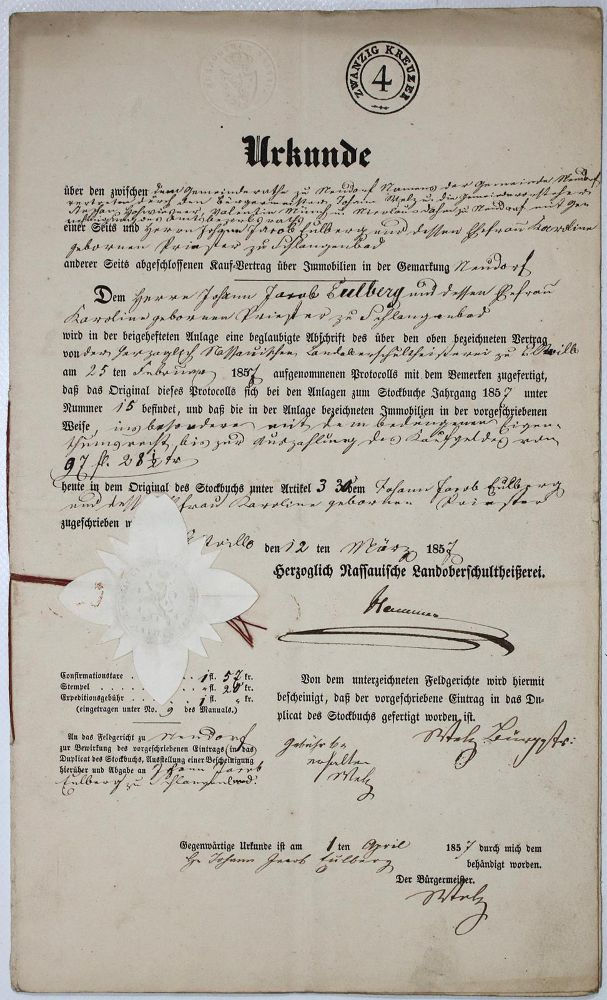 ZWANZIG KREUZER
4
Urkunde
über den zwischen dem Gemeinderathe zu Neudorf Namens der Gemeinde Neudorf
vertreten durch den Bürgermeister Johann Welz u. die Gemeindevorsteher
Valentin u. Nicolaus zu Neudorf mit
des
einer Seits und Herrn Johann Jacob Eulberg und dessen Ehefrau Karoline
gebornen Priester zu Schlangenbad
anderer Seits abgeschlossenen Kauf-Vertrag über Immobilien in der Gemarkung Neudorf
Dem Herrn Johann Jacob Eulberg und dessen Ehefrau
Karoline gebornen Priester zu Schlangenbad
wird in der beigehefteten Anlage eine beglaubigte Abschrift des über den oben bezeichneten Vertrag
von der Herzoglich Nassauischen Landoberschultheißerei zu Eltville
am 25 ten Februar 1857 aufgenommenen Protocolls mit dem Bemerken zugefertigt,
daß das Original dieses Protocolls sich bei den Anlagen zum Stockbuche Jahrgang 1857 unter
Nummer 15 befindet, und daß die in der Anlage bezeichneten Immobilien in der vorgeschriebenen
Weise, insbesondere mit dem bedungenen Eigen-
thumsrecht bis zur Auszahlung des Kaufgeldes von
97 fl. 28½ kr
heute in dem Original des Stockbuchs unter Artikel dem Johann Jacob Eulberg
und Ehefrau Karoline gebornen Priester
zugeschrieben
den 12 ten März 1857
Herzoglich Nassauische Landoberschultheißerei.
Confirmationstaxe 1 fl. 57 kr.
Stempel " fl. 20 kr.
Expeditionsgebühr 1 fl. " kr.
(eingetragen unter No. 9 des Manuals.)
Von dem unterzeichneten Feldgerichte wird hiermit
bescheinigt, daß der vorgeschriebene Eintrag in das Du-
plicat des Stockbuchs gefertigt worden ist.
Welz Bürgmstr:
An das Feldgericht zu Neudorf
zur Bewirkung des vorgeschriebenen Eintrags in das
Duplicat des Stockbuchs, Ausstellung einer Bescheinigung
hierüber und Abgabe an Johann Jacob
Eulberg zu Schlangenbad.
Gebühr
erhalten
Welz
Gegenwärtige Urkunde ist am 1 ten April 1857 durch mich dem
Johann Jacob Eulberg behändigt worden.
Der Bürgermeister.
Welz